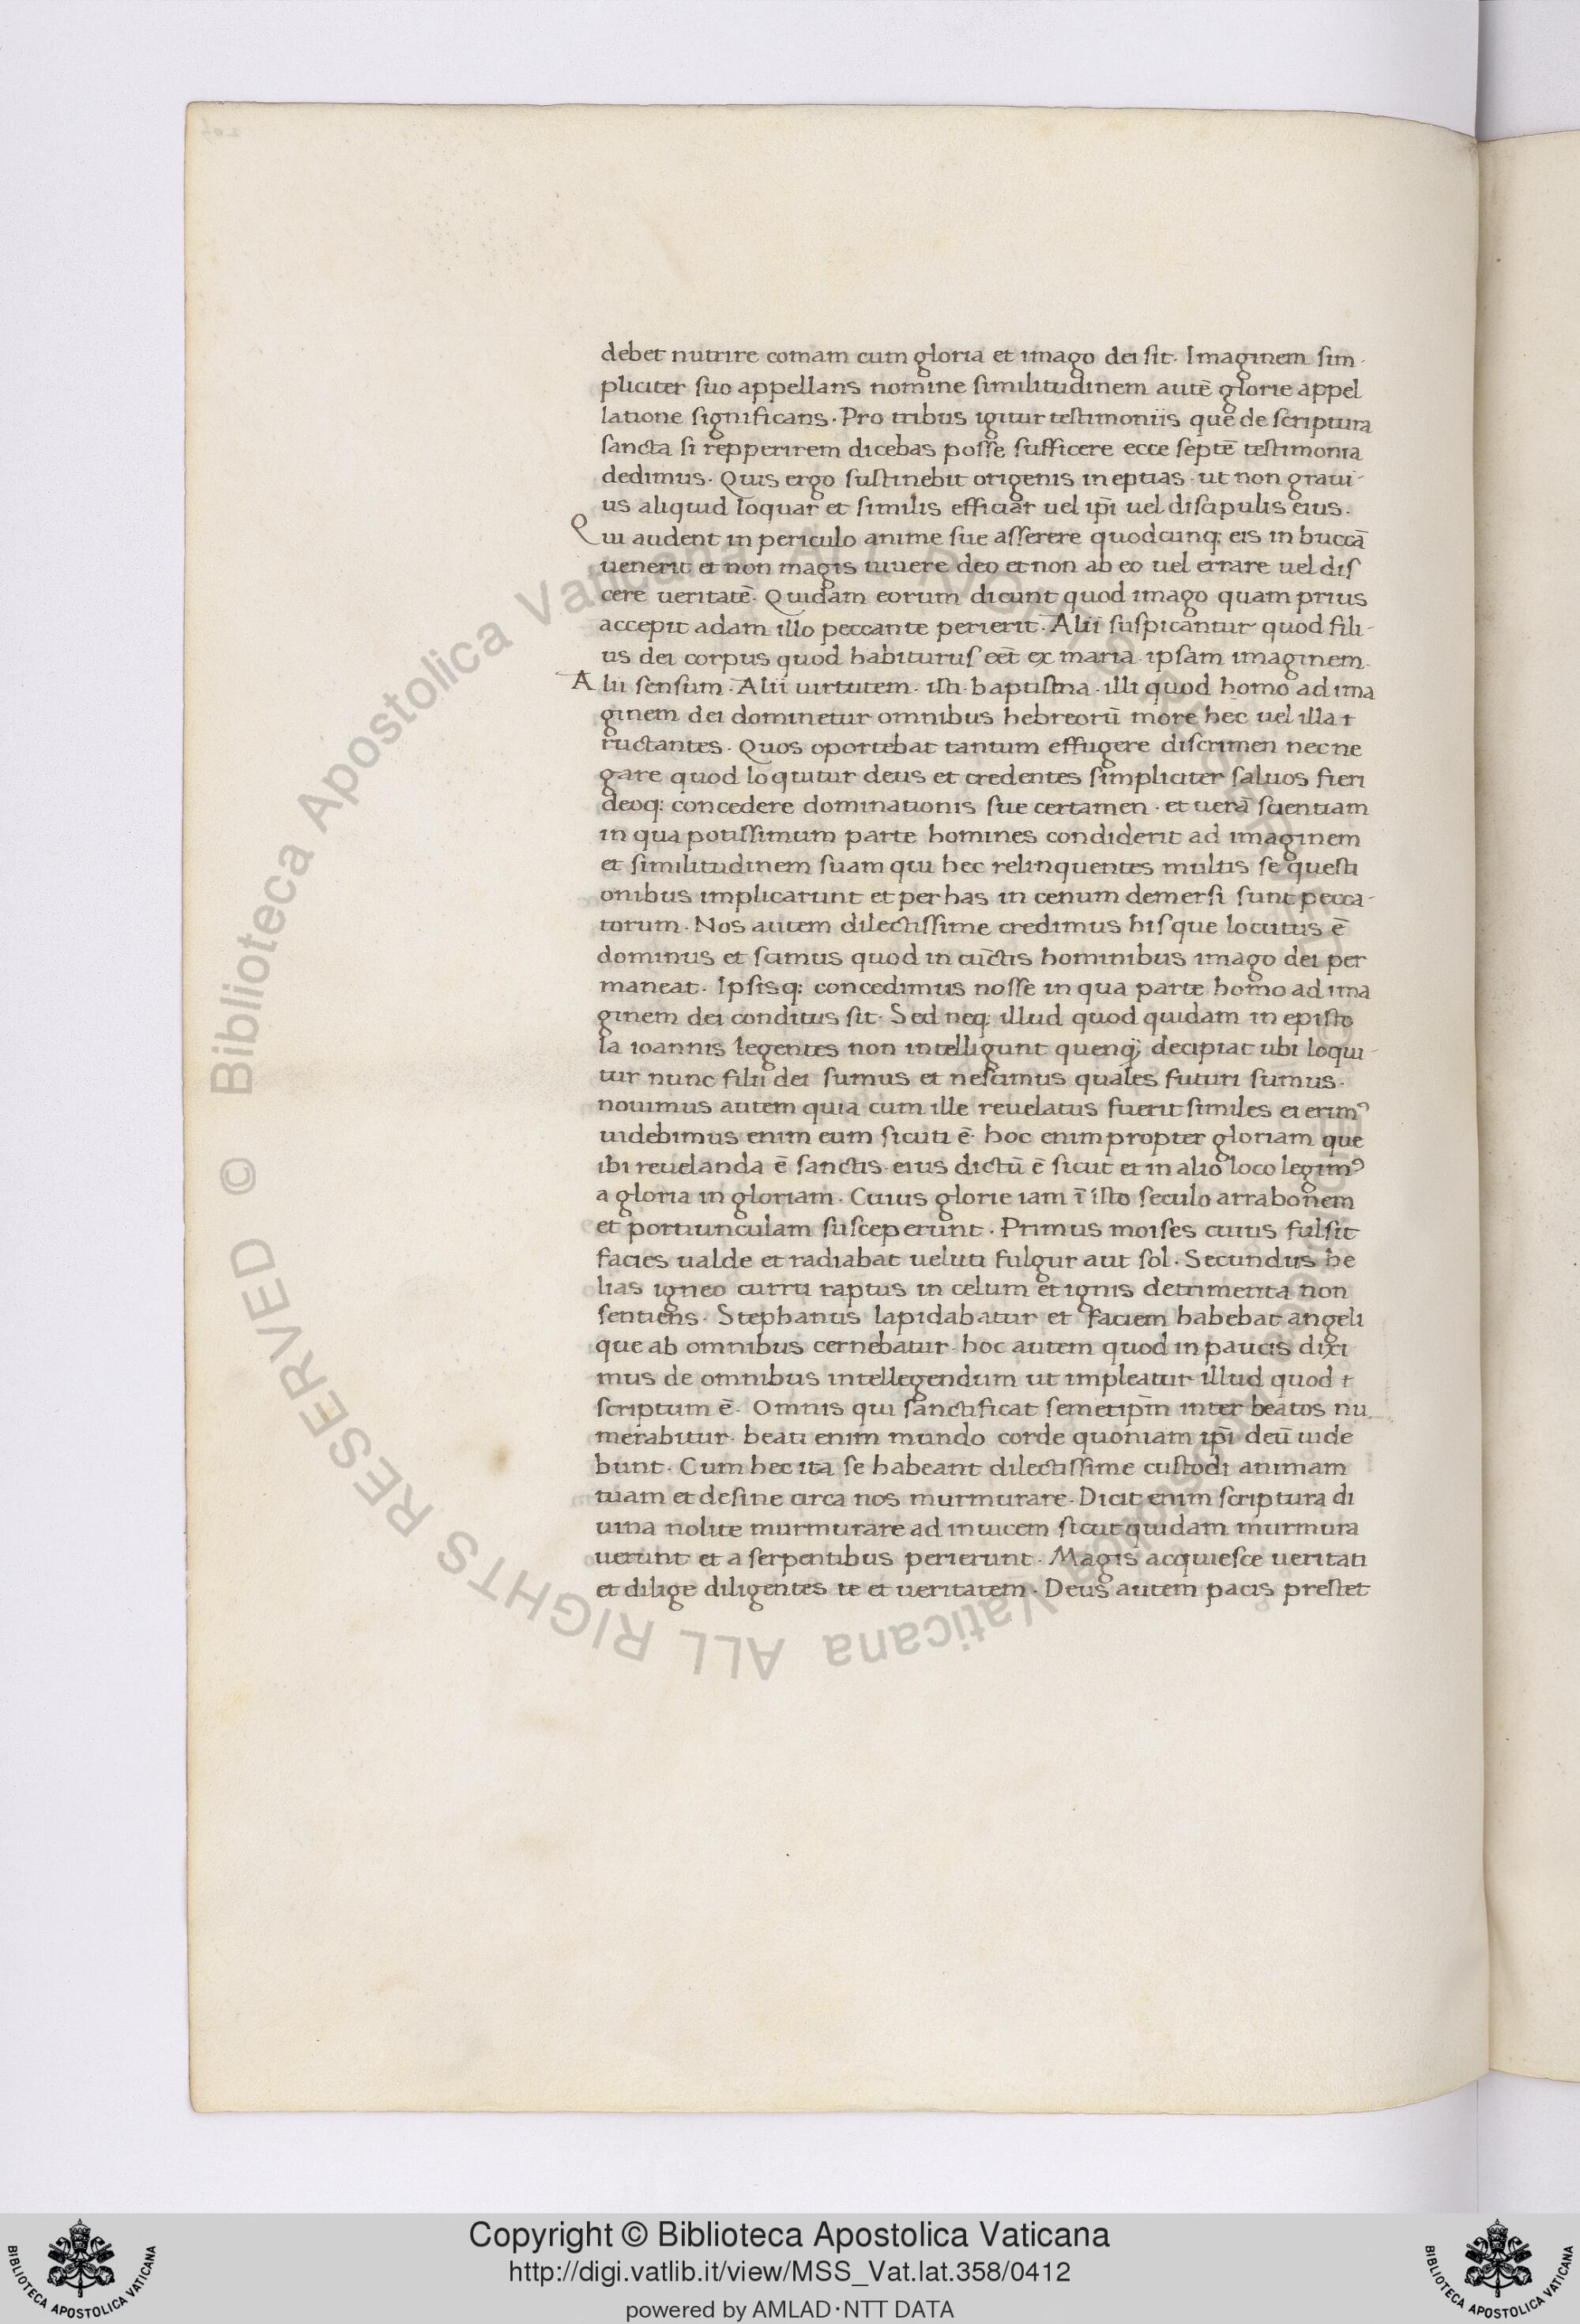 debet nutrire comam cum gloria et imago dei sit. Imaginem sim-
pliciter suo appellans nomine similitudinem autē glorie appel
latione significans. Pro tribus igitur testimoniis que de scriptura
sancta si repperirem dicebas posse sufficere ecce septē testimonia
dedimus. Quis ergo sustinebit origenis ineptias. ut non graui-
us aliquid loquar et similis efficiar uel ip̄i uel discipulis eius.
Qui audent in periculo anime sue asserere quodcunq; eis in buccā
uenerit et non magis iuuere deo et non ab eo uel errare uel dis
cere ueritatē. Quidam eorum dicunt quod imago quam prius
accepit adam illo peccante perierit. Alii suspicantur quod fili-
us dei corpus quod habiturus eēt ex maria ipsam imaginem.
Alii sensum. Alii uirtutem. isti baptisma. illi quod homo ad ima
ginem dei dominetur omnibus hebreorū more hec uel illa
ructantes. Quos oportebat tantum effugere discrimen nec ne
gare quod loquitur deus et credentes simpliciter saluos fieri
deoq; concedere dominationis sue certamen. et uerā scientiam
in qua potissimum parte homines condiderit ad imaginem
et similitudinem suam qui hec relinquentes multis se questi
onibus implicarunt et per has in cenum demersi sunt pecca-
torum. Nos autem dilectissime credimus his que locutus ē
dominus et scimus quod in cūctis hominibus imago dei per
maneat. Ipsisq; concedimus nosse in qua parte homo ad ima
ginem dei conditus sit. Sed neq; illud quod quidam in episto
la ioannis legentes non intelligunt quenq; decipiat ubi loqui-
tur nunc filii dei sumus et nescimus quales futuri sumus.
nouimus autem quia cum ille reuelatus fuerit similes ei erimꝰ
uidebimus enim eum sicuti ē. hoc enim propter gloriam que
ibi reuelanda ē sanctis eius dictū ē sicut et in alio loco legimꝰ
a gloria in gloriam. Cuius glorie iam ī isto seculo arrabonem
et portiunculam susceperunt. Primus moises cuius fulsit
facies ualde et radiabat ueluti fulgur aut sol. Secundus he
lias igneo curru raptus in celum et ignis detrimenta non
sentiens. Stephanus lapidabatur et faciem habebat angeli
que ab omnibus cernebatur. hoc autem quod in paucis dixi
mus de omnibus intellegendum ut impleatur illud quod
scriptum ē. Omnis qui sanctificat semetip̄m inter beatos nu
merabitur. beati enim mundo corde quoniam ip̄i deū uide
bunt. Cum hec ita se habeant dilectissime custodi animam
tuam et desine circa nos murmurare. Dicit enim scriptura di
uina nolite murmurare ad inuicem sicut quidam murmura
uerunt et a serpentibus perierunt. Magis acquiesce ueritati
et dilige diligentes te et ueritatem. Deus autem pacis prestet
© Biblioteca Apostolica Vaticana ALL RIGHTS RESERVED
BIBLIOTECA APOSTOLICA VATICANA
Copyright © Biblioteca Apostolica Vaticana
http://digi.vatlib.it/view/MSS_Vat.lat.358/0412
powered by AMLAD·NTT DATA
BIBLIOTECA APOSTOLICA VATICANA